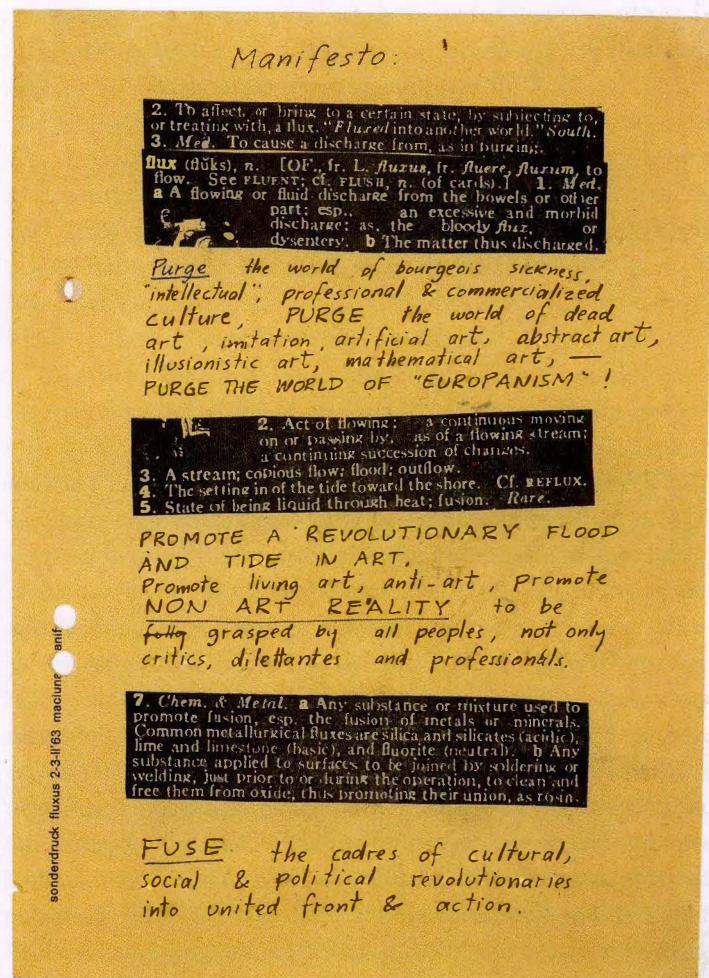 Manifesto:
2. To affect, or bring to a certain state, by subjecting to,
or treating with, a flux. "Fluxed into another world." South.
3. Med. To cause a discharge from, as in purging.
flux (flŭks), n. [OF., fr. L. fluxus, fr. fluere, fluxum, to
flow. See FLUENT; cf. FLUSH, n. (of cards).] 1. Med.
a A flowing or fluid discharge from the bowels or other
part; esp., an excessive and morbid
discharge; as, the bloody flux, or
dysentery. b The matter thus discharged.
Purge the world of bourgeois sickness,
"intellectual", professional & commercialized
culture, PURGE the world of dead
art, imitation, artificial art, abstract art,
illusionistic art, mathematical art, —
PURGE THE WORLD OF "EUROPANISM"!
2. Act of flowing: a continuous moving
on or passing by, as of a flowing stream;
a continuing succession of changes.
3. A stream; copious flow; flood; outflow.
4. The setting in of the tide toward the shore. Cf. REFLUX.
5. State of being liquid through heat; fusion. Rare.
PROMOTE A REVOLUTIONARY FLOOD
AND TIDE IN ART.
Promote living art, anti-art, promote
NON ART REALITY to be
grasped by all peoples, not only
critics, dilettantes and professionals.
7. Chem. & Metal. a Any substance or mixture used to
promote fusion, esp. the fusion of metals or minerals.
Common metallurgical fluxes are silica and silicates (acidic),
lime and limestone (basic), and fluorite (neutral). b Any
substance applied to surfaces to be joined by soldering or
welding, just prior to or during the operation, to clean and
free them from oxide, thus promoting their union, as rosin.
FUSE the cadres of cultural,
social & political revolutionaries
into united front & action.
sonderdruck fluxus 2-3-II'63 maciuna anif